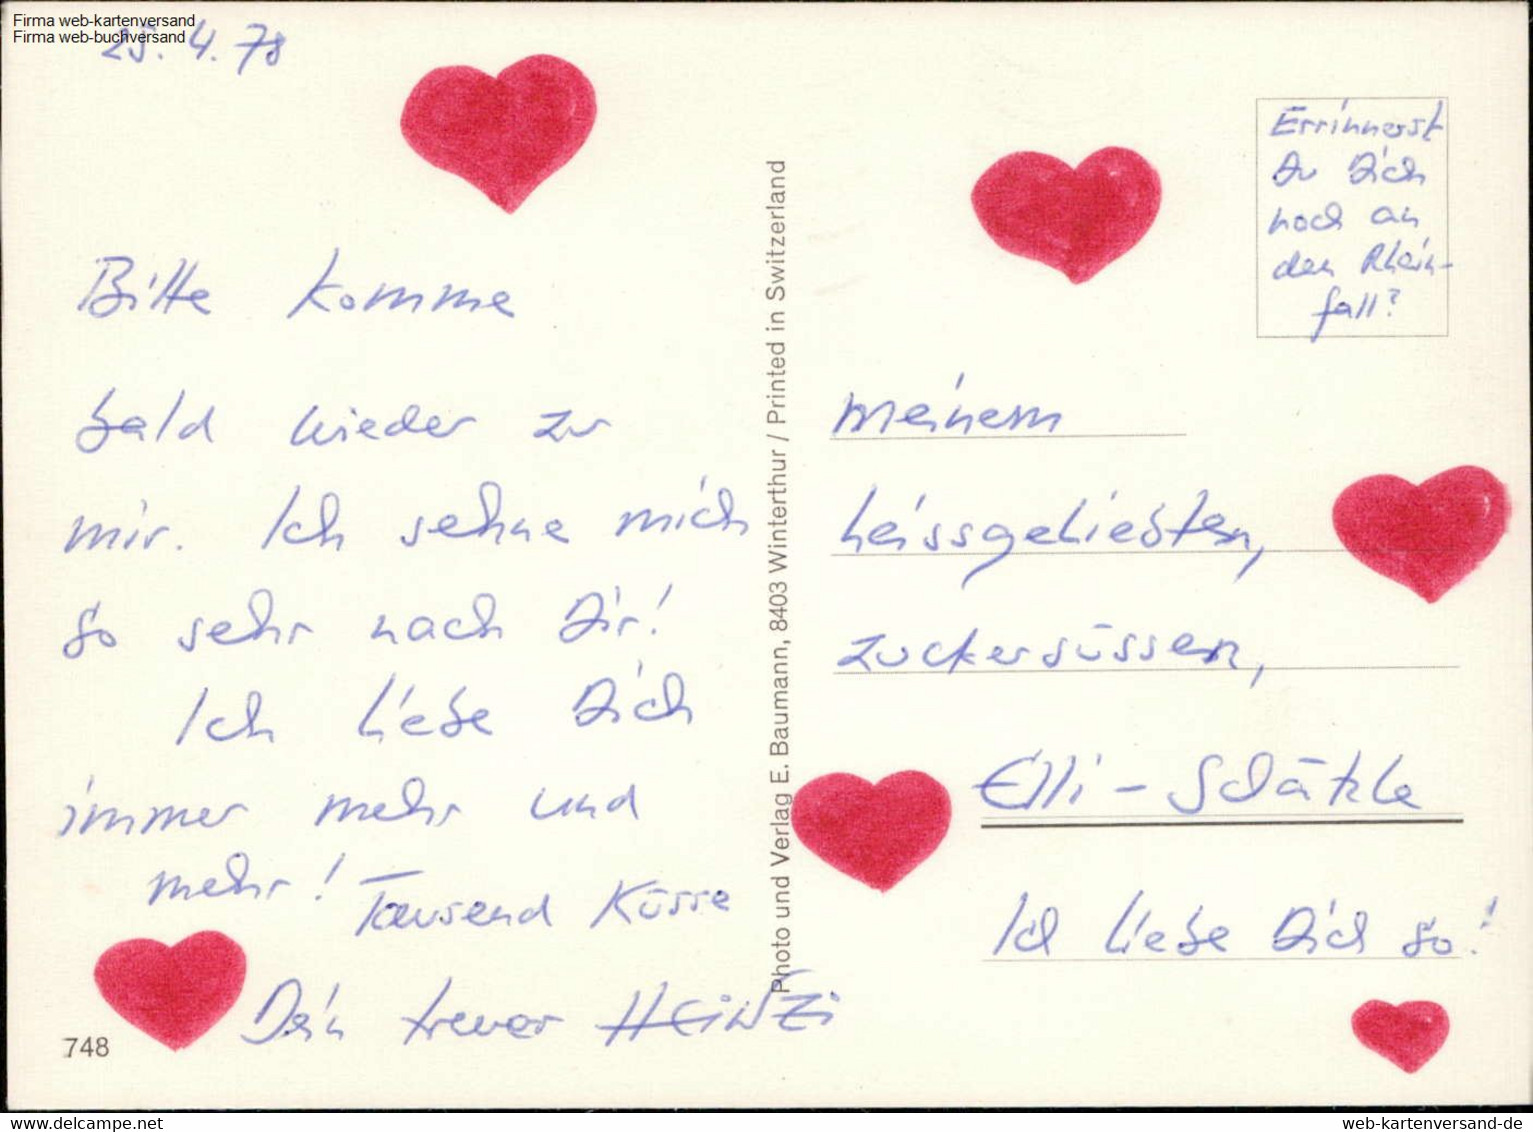 Firma web-kartenversand
Firma web-buchversand
25.4.78
Bitte komme
bald wieder zu
mir. Ich sehne mich
so sehr nach Dir!
Ich liebe Dich
immer mehr und
mehr! Tausend Küsse
Dein treuer HEiNZi
748
Photo und Verlag E. Baumann, 8403 Winterthur / Printed in Switzerland
Errinnerst
Du Dich
noch an
den Rhein-
fall?
meinem
heissgeliebten,
zuckersüssen,
Elli-Schätzle
Ich liebe Dich so!
www.delcampe.net
web-kartenversand-de